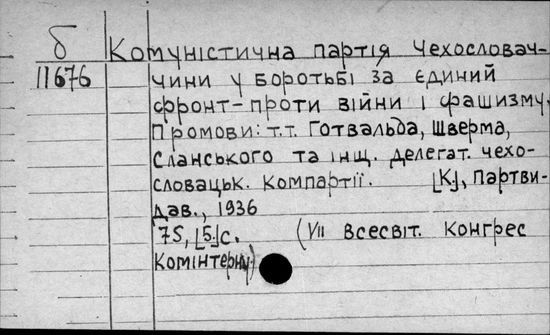 б
Комуністична партія Чехословач-
11676
чини у боротьбі за єдиний
фронт-проти війни і фашизму.
Промови: т.т. Готвальда, Шверма,
Сланського та інщ. делегат. чехо-
словацьк. компартії. [К], Партви-
дав., 1936
75, [5] с. (VII всесвіт. конгрес
Комінтерну)